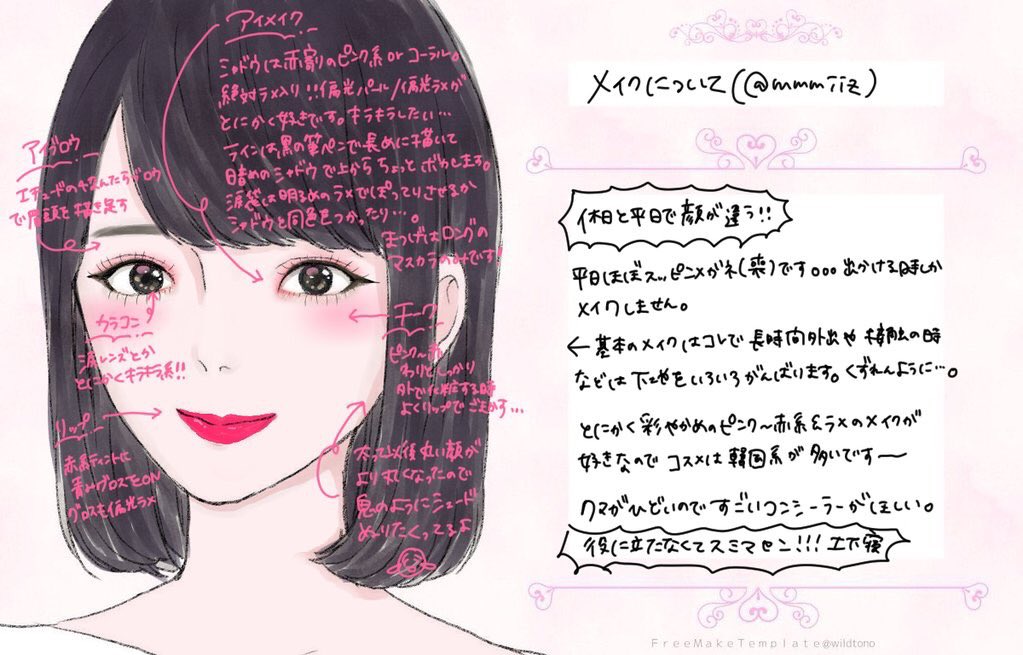 アイメイク
シャドウは赤寄りのピンク系 or コーラル。
絶対ラメ入り!!偏光パール/偏光ラメが
とにかく好きです。キラキラしたい…
ラインは黒の筆ペンで長めに描いて
暗めのシャドウで上からちょっとボカします。
涙袋は明るめのラメでぽってりさせるか
シャドウと同色色つかったり…。
まつげはロングの
マスカラのみです!
アイブロウ
エチュードの
で眉頭を描き足す
カラコン
涙レンズとか
とにかくキラキラ系!!
チーク
ピンク〜赤
わりとしっかり
外で化粧する時
よくリップでごまかす…
リップ
赤系ティントに
青みグロスをON
グロスも偏光ラメ
以後丸い顔が
より丸くなったので
鬼のようにシェード
ぬりたくってるよ
メイクについて(@mmmiiz)
休日と平日で顔が違う!!
平日ほぼスッピンメガネ(喪)です。。。出かける時しか
メイクしません。
← 基本のメイクはコレで長時間外出や接触の時
などは下地をいろいろがんばります。くずれんように…。
とにかく彩やかめのピンク〜赤系&ラメのメイクが
好きなのでコスメは韓国系が多いです〜
クマがひどいのですごいコンシーラーがほしい。
役に立たなくてスミマセン!!!土下寝
FreeMakeTemplate@wildtono